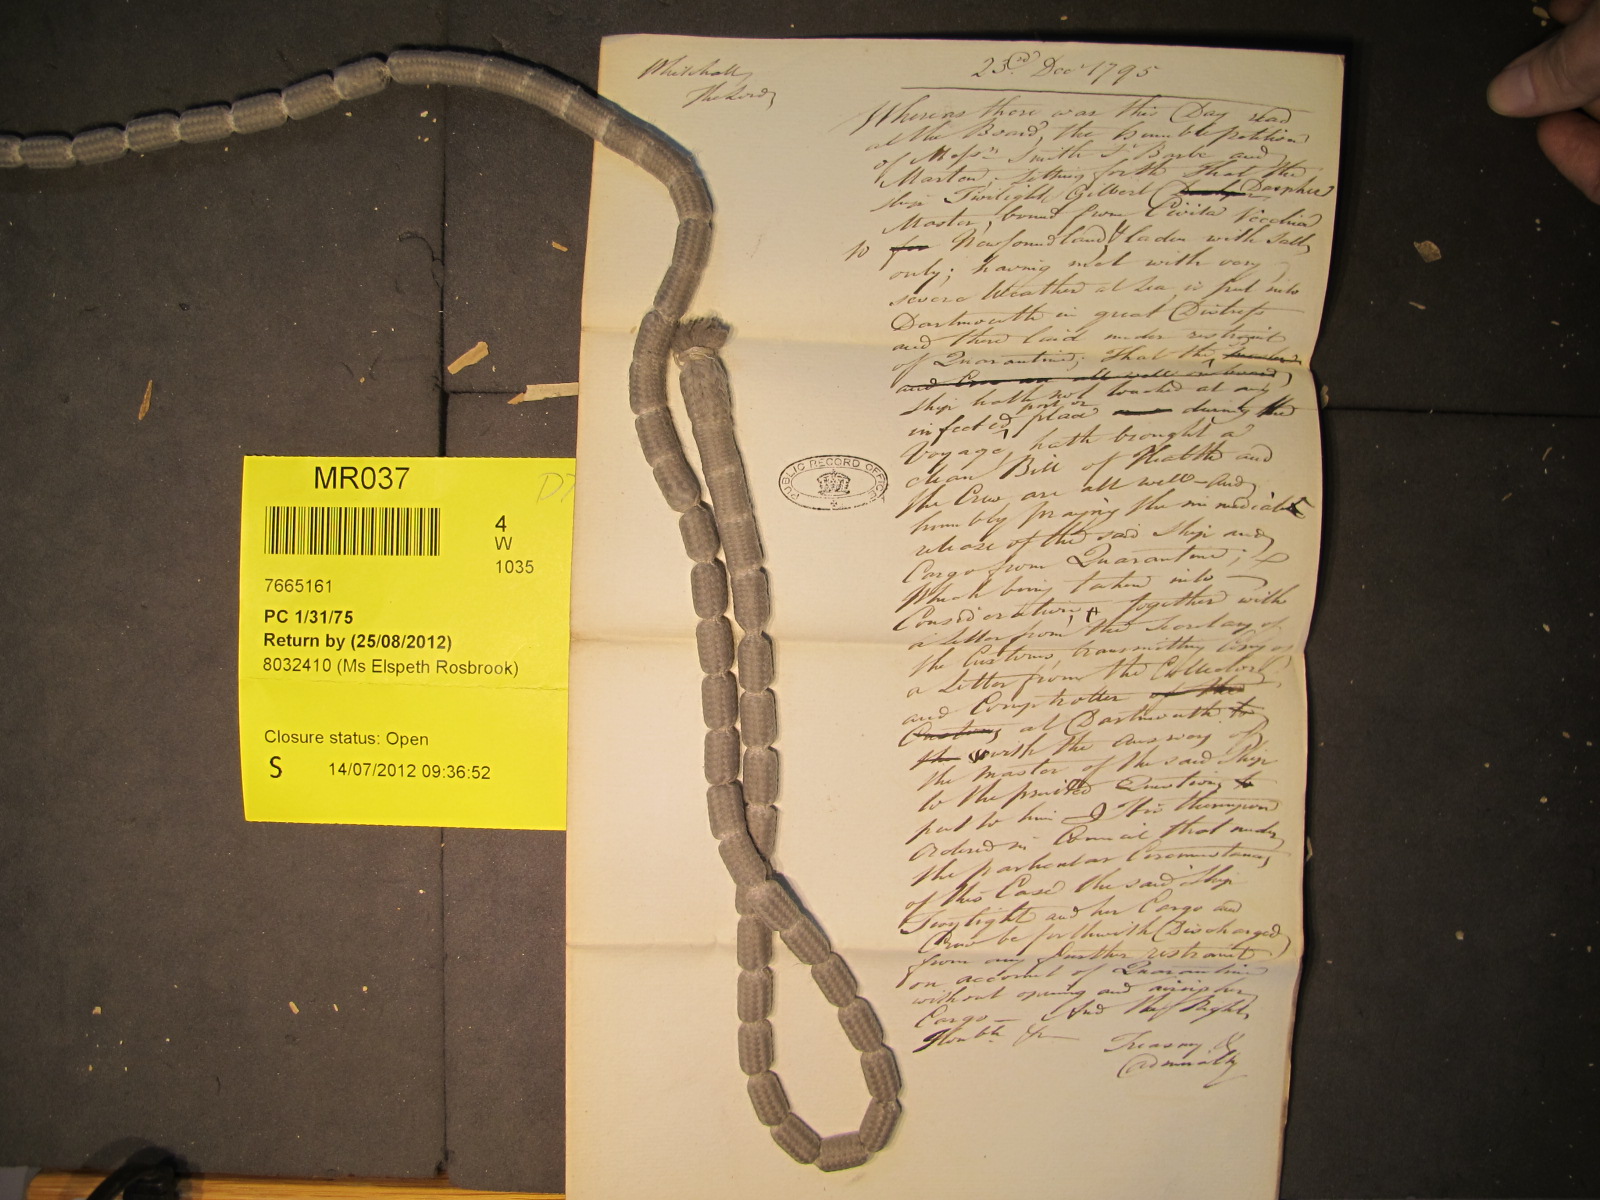 MR037
4
W
1035
7665161
PC 1/31/75
Return by (25/08/2012)
8032410 (Ms Elspeth Rosbrook)
Closure status: Open
S
14/07/2012 09:36:52
PUBLIC RECORD OFFICE
Whitehall
The Lords
23rd Decr 1795
Whereas there was this Day read
at the Board, the humble petition
of Messrs Smith St Barbe and
Marten; setting forth that the
ship Twilight Gilbert
Master, bound from Civita Vecchia
to for Newfoundland, laden with Salt
only; having met with very
severe Weather at Sea is put into
Dartmouth in great Distress
and there laid under restraint
of Quarantine; That the
and Crew are all well on board,
ship hath not touched at any
infected port or place during the
Voyage, hath brought a
clean Bill of Health and
the Crew are all well and
humbly praying the immediate
release of the said Ship and
Cargo from Quarantine;
Which being taken into
Consideration, together with
a letter from the Secretary of
the Customs, transmitting Copy of
a Letter from the Collector
and Comptroller of the
Customs at Dartmouth to
the with the Answers of
the Master of the said Ship
to the printed Questions to
put to him It is thereupon
ordered in Council that under
the particular Circumstances
of this Case the said Ship
Twylight and her Cargo and
Crew be forthwith Discharged
from any further restraint
on account of Quarantine
without opening and airing her
Cargo — And the Right
Honble &c
Treasury &
Admiralty